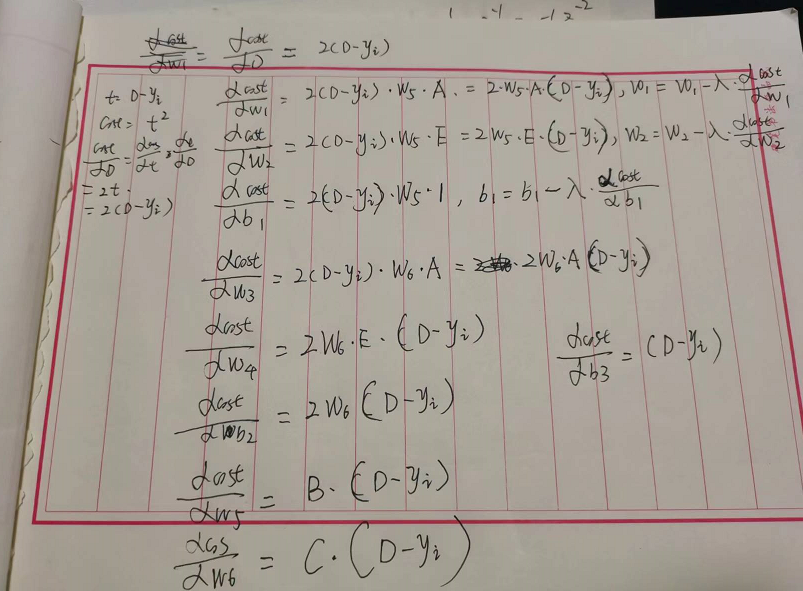 dcost/dD = 2(D-yi)
t= D-yi
cost= t²
cost/dD = dcos/dt · dt/dD
=2t.
=2(D-yi)
dcost/dw1 = 2(D-yi)·W5·A. = 2·W5·A·(D-yi), W1 = W1-λ·dcost/dw1
dcost/dW2 = 2(D-yi)·W5·E = 2W5·E·(D-yi), W2 = W2-λ·dcost/dW2
dcost/db1 = 2(D-yi)·W5·1, b1 = b1-λ·dcost/db1
dcost/dW3 = 2(D-yi)·W6·A = 2W6·A(D-yi)
dcost/dW4 = 2W6·E·(D-yi)
dcost/db3 = (D-yi)
dcost/db2 = 2W6(D-yi)
dcost/dW5 = B·(D-yi)
dcos/dW6 = C·(D-yi)